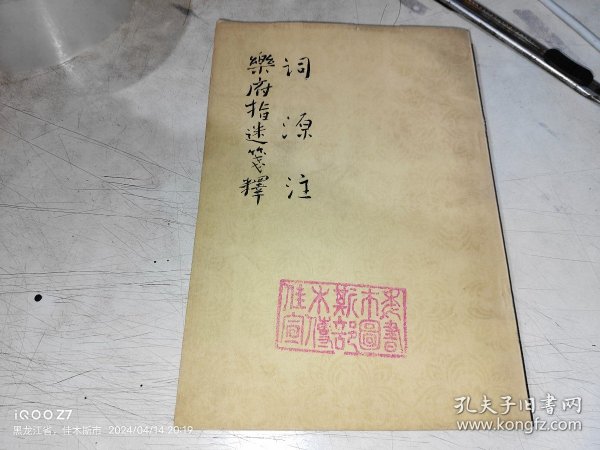 詞源注
樂府指迷箋釋
佳木斯市委
宣傳部圖書
iQOO Z7
黑龙江省，佳木斯市 2024/04/14 20:19
孔夫子旧书网
www.kongfz.com